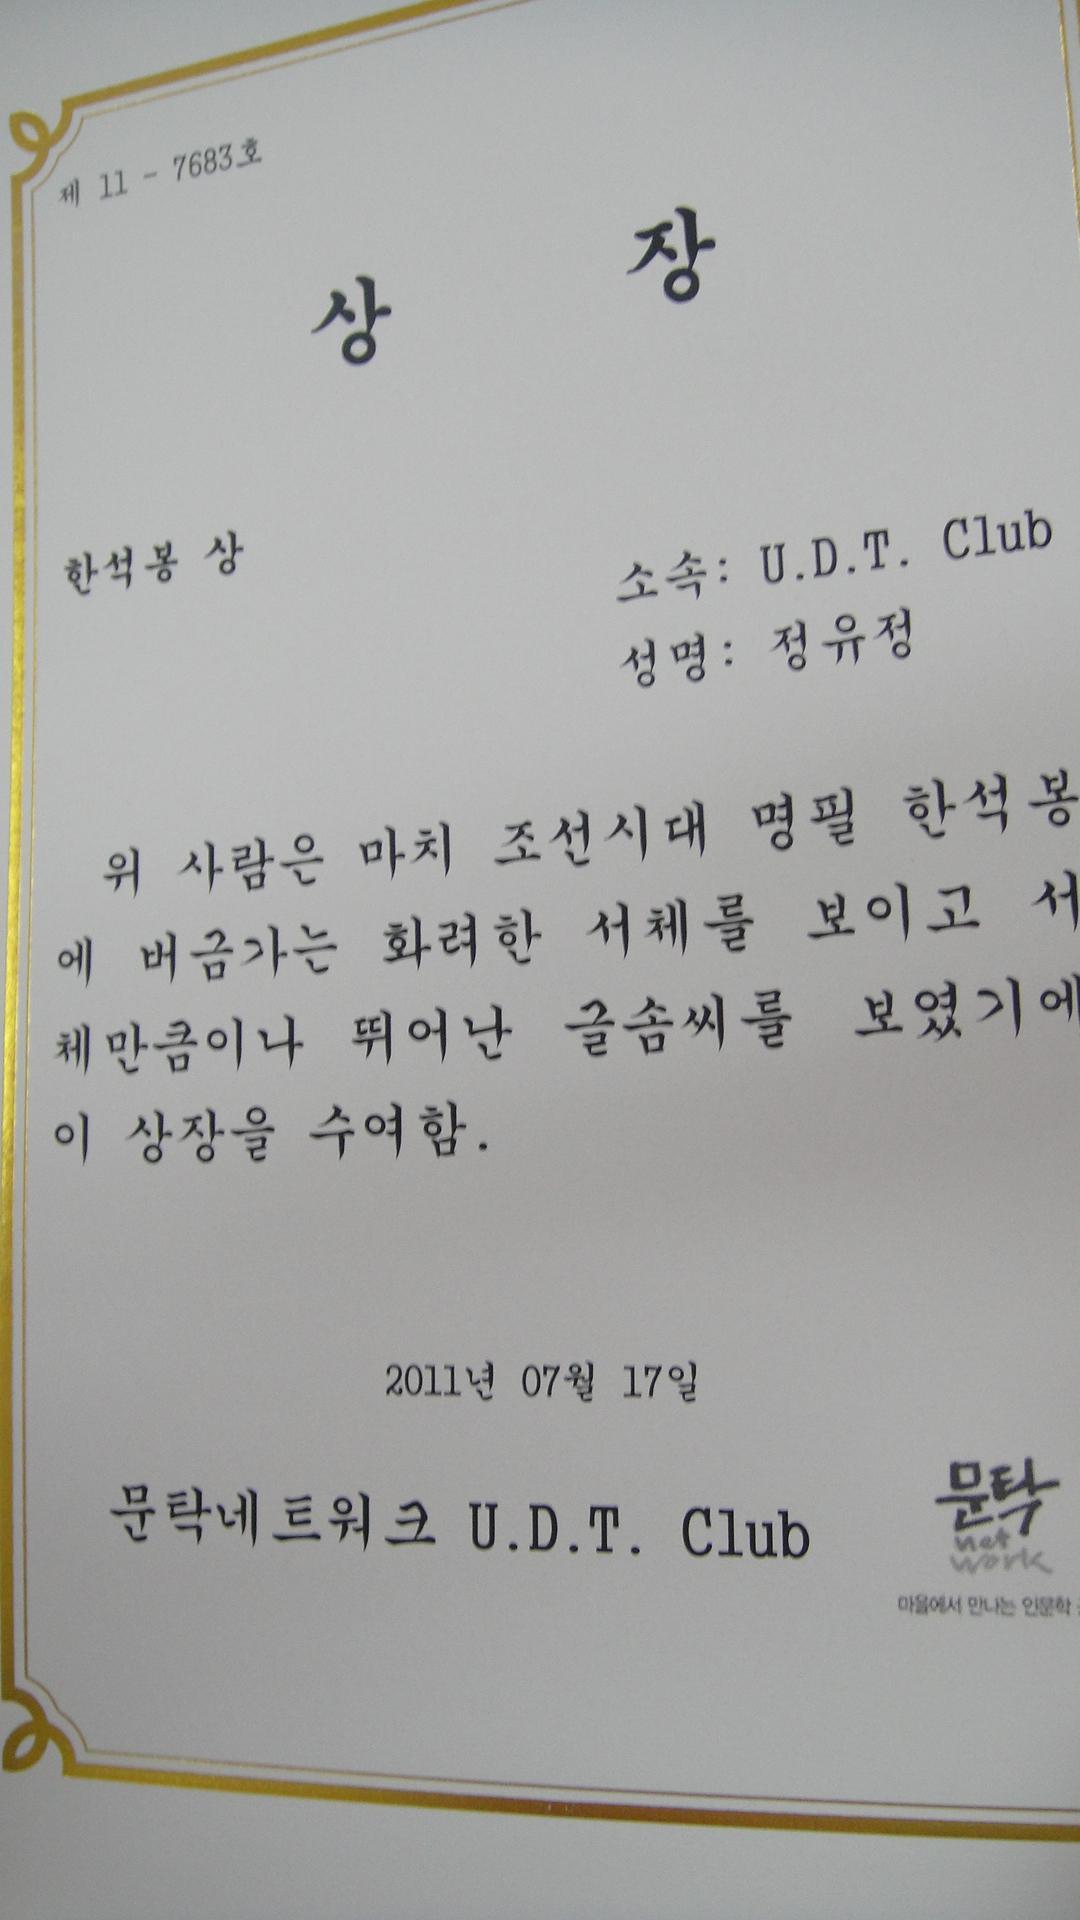 제 11 - 7683호
상 장
한석봉 상
소속: U.D.T. Club
성명: 정유정
위 사람은 마치 조선시대 명필 한석봉
에 버금가는 화려한 서체를 보이고 서
체만큼이나 뛰어난 글솜씨를 보였기에
이 상장을 수여함.
2011년 07월 17일
문탁네트워크 U.D.T. Club
문탁
net
work
마을에서 만나는 인문학